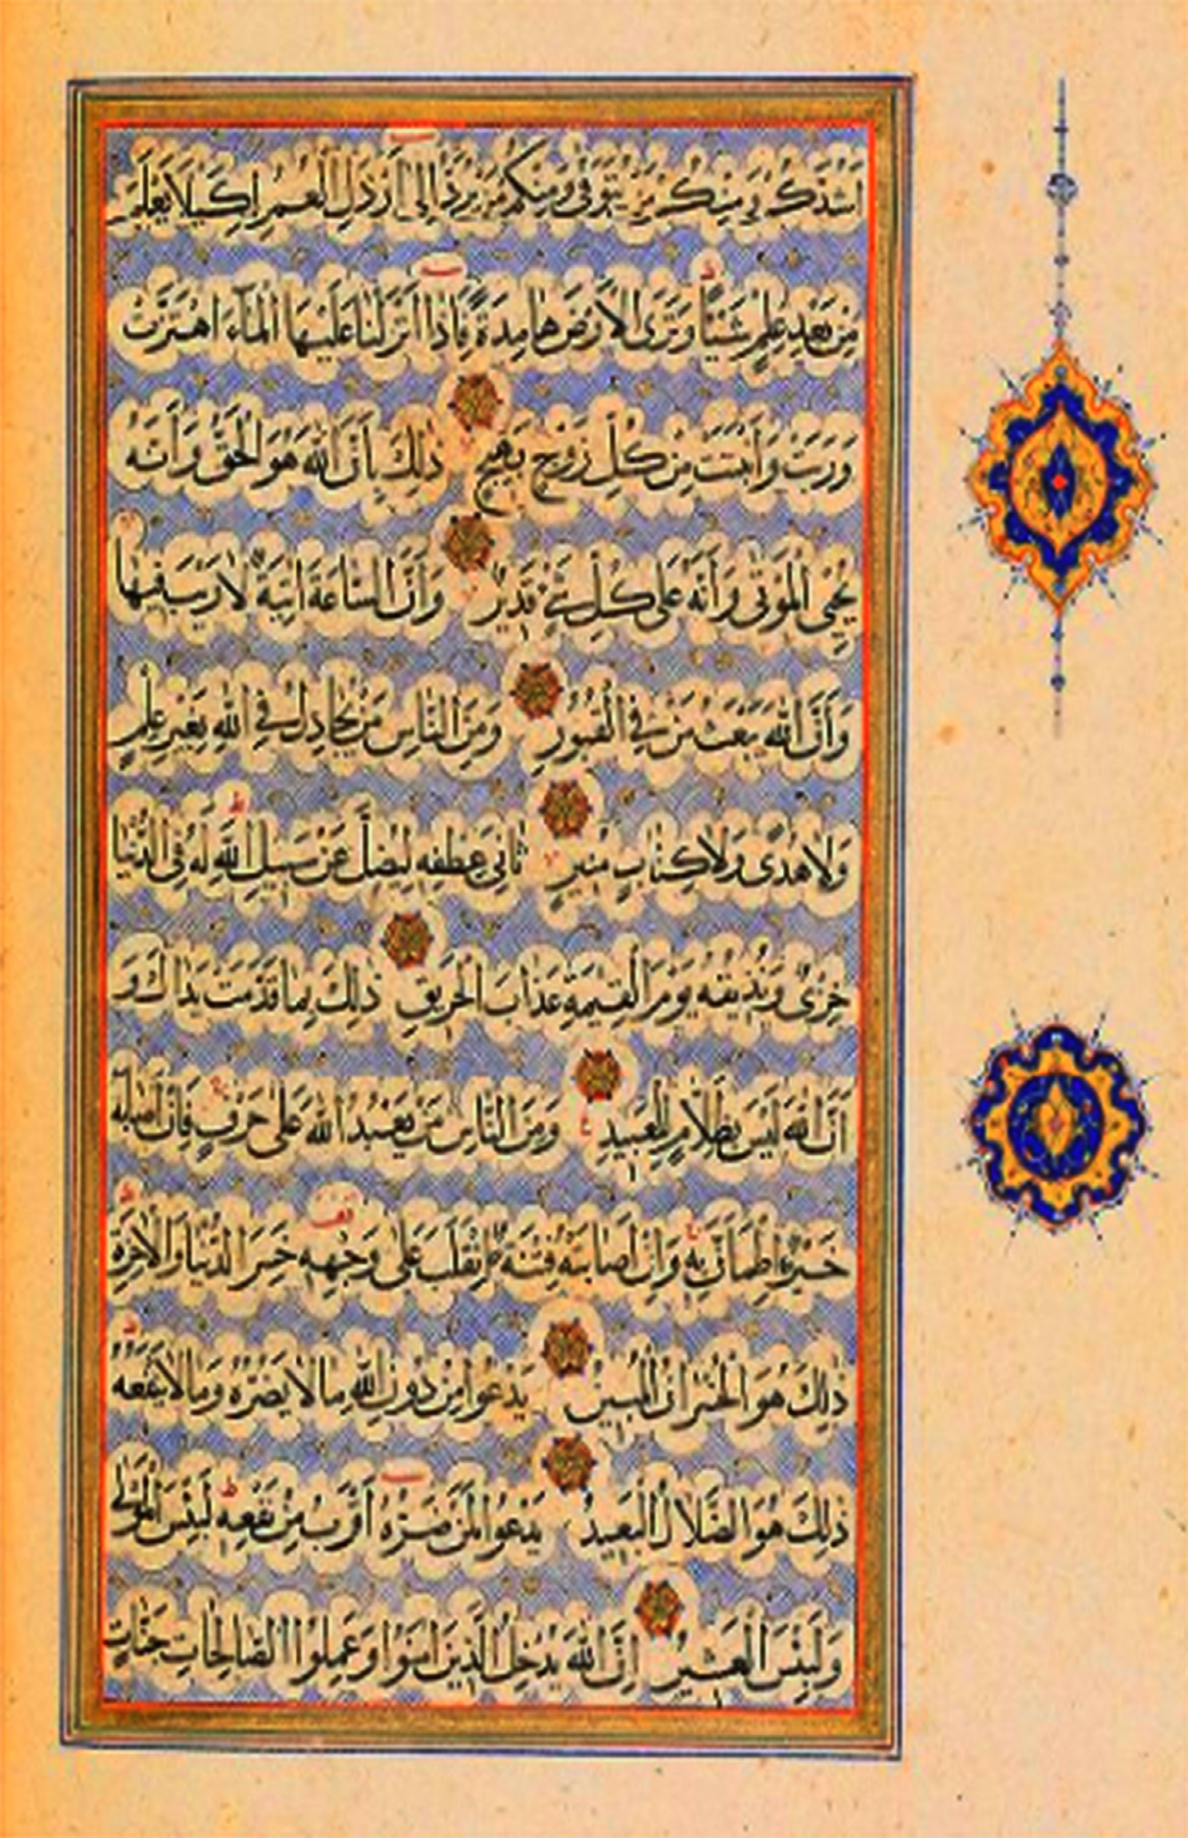 اَشُدَّكُمْ وَمِنْكُمْ مَنْ يُتَوَفّٰى وَمِنْكُمْ مَنْ يُرَدُّ اِلٰى اَرْذَلِ الْعُمُرِ لِكَيْلَا يَعْلَمَ
مِنْ بَعْدِ عِلْمٍ شَيْئًا وَتَرَى الْاَرْضَ هَامِدَةً فَاِذَا اَنْزَلْنَا عَلَيْهَا الْمَاءَ اهْتَزَّتْ
وَرَبَتْ وَاَنْبَتَتْ مِنْ كُلِّ زَوْجٍ بَهِيجٍ ذٰلِكَ بِاَنَّ اللّٰهَ هُوَ الْحَقُّ وَاَنَّهُ
يُحْيِي الْمَوْتٰى وَاَنَّهُ عَلٰى كُلِّ شَيْءٍ قَدِيرٌ وَاَنَّ السَّاعَةَ اٰتِيَةٌ لَا رَيْبَ فِيهَا
وَاَنَّ اللّٰهَ يَبْعَثُ مَنْ فِي الْقُبُورِ وَمِنَ النَّاسِ مَنْ يُجَادِلُ فِي اللّٰهِ بِغَيْرِ عِلْمٍ
وَلَا هُدًى وَلَا كِتَابٍ مُنِيرٍ ثَانِيَ عِطْفِهِ لِيُضِلَّ عَنْ سَبِيلِ اللّٰهِ لَهُ فِي الدُّنْيَا
خِزْيٌ وَنُذِيقُهُ يَوْمَ الْقِيٰمَةِ عَذَابَ الْحَرِيقِ ذٰلِكَ بِمَا قَدَّمَتْ يَدَاكَ وَ
اَنَّ اللّٰهَ لَيْسَ بِظَلَّامٍ لِلْعَبِيدِ وَمِنَ النَّاسِ مَنْ يَعْبُدُ اللّٰهَ عَلٰى حَرْفٍ فَاِنْ اَصَابَهُ
خَيْرٌ اطْمَاَنَّ بِهِ وَاِنْ اَصَابَتْهُ فِتْنَةٌ انْقَلَبَ عَلٰى وَجْهِهِ خَسِرَ الدُّنْيَا وَالْاٰخِرَةَ
ذٰلِكَ هُوَ الْخُسْرَانُ الْمُبِينُ يَدْعُوا مِنْ دُونِ اللّٰهِ مَا لَا يَضُرُّهُ وَمَا لَا يَنْفَعُهُ
ذٰلِكَ هُوَ الضَّلَالُ الْبَعِيدُ يَدْعُوا لَمَنْ ضَرُّهُ اَقْرَبُ مِنْ نَفْعِهِ لَبِئْسَ الْمَوْلٰى
وَلَبِئْسَ الْعَشِيرُ اِنَّ اللّٰهَ يُدْخِلُ الَّذِينَ اٰمَنُوا وَعَمِلُوا الصَّالِحَاتِ جَنَّاتٍ